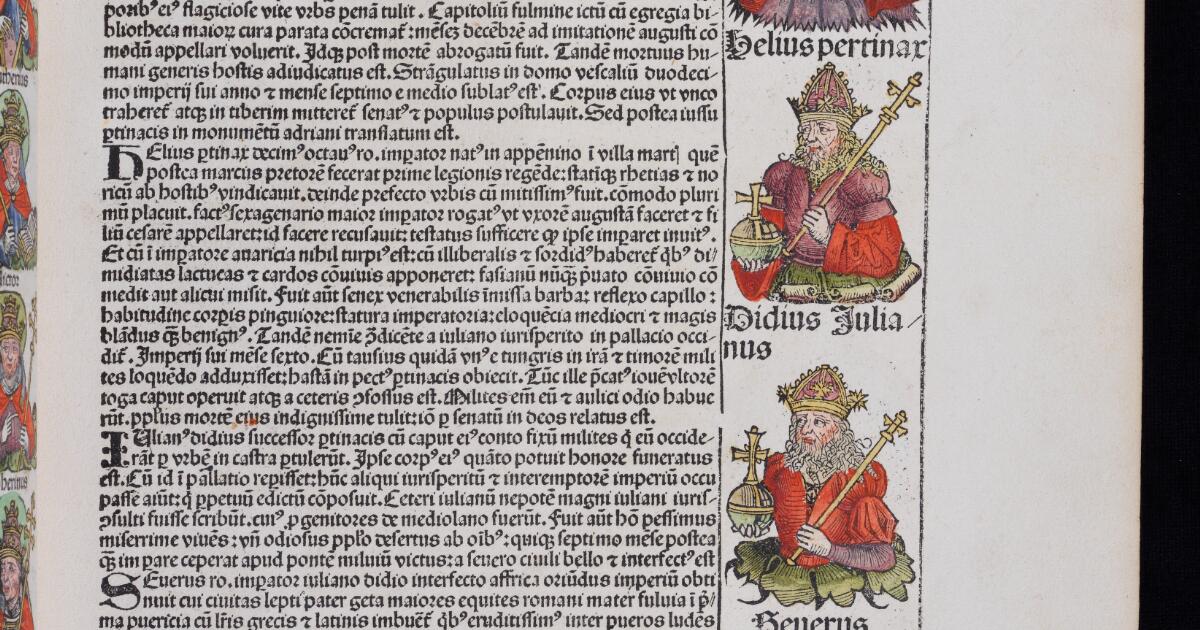 porib⁹ ei⁹ flagiciose vite vrbs penā tulit . Capitoliū fulmine ictū cū egregia bi-
bliotheca maior⁊ cura parata cōcremat⁹ : mēsez decēbrē ad imitationē augusti cō
modū appellari voluerit. Jdqz post mortē abrogatū fuit. Tandē mortuus hu-
mani generis hostis adiudicatus est. Strāgulatus in domo vescaliū duodeci-
mo imperij sui anno ⁊ mense septimo e medio sublat⁹ est. Corpus eius vt vnco
traheret̄ atqz in tiberim mitteret̄ senat⁹ ⁊ populus postulauit. Sed postea iussu
ꝑtinacis in monumētū adriani translatum est.
HElius ꝑtinax decim⁹octau⁹ro. imꝑator nat⁹ in appēnino ī villa martꝭ quē
postea marcus pretorē fecerat prime legionis regēde: statīqz rhetias ⁊ no
ricū ab hostib⁹ vindicauit. deinde prefecto vrbis cū mitissim⁹ fuit. cōmodo pluri
mū placuit. fact⁹ sexagenario maior imꝑator rogat⁹ vt vxorē augustā faceret ⁊ fi
liū cesarē appellaret: id facere recusauit: testatus sufficere ꝙ ipse imꝑaret inuit⁹.
Et cū ī imperatore auaricia nihil turpi⁹ est: cū illiberalis ⁊ sordid⁹ haberet̄ q̄b⁹ di-
midiatas lactucas ⁊ cardos cōuiuis apponeret: fasianū nūqz ꝓuato cōuiuio cō
medit aut alicui misit. Fuit aūt senex venerabilis īmissa barba: reflexo capillo :
habitudine corꝑis pinguiore: statura imperatoria: eloquēcia mediocri ⁊ magis
blādus q̄z benign⁹. Tandē nemīe ꝯdicēte a iuliano iurisperito in pallacio occi-
dit̄. Imperij sui mēse sexto. Cū tausius quidā vn⁹ e tungris in irā ⁊ timorē mili
tes loquēdo adduxisset: hastā in pect⁹ ꝑtinacis obiecit. Tūc ille p̄cat⁹ iouē vltorē
toga caput operuit atqz a ceteris ꝯfossus est. Milites em̄ eū ⁊ aulici odio habue
rūt. pp̄lus mortē eius indignissime tulit: iō ꝑ senatū in deos relatus est.
IUlian⁹ didius successor ꝑtinacis cū caput ei⁹ conto fixū milites q̄ eū occide-
rāt ꝑ vrbē in castra ꝑtulerūt. Ipse corp⁹ ei⁹ quāto potuit honore funeratus
est. Cū id ī pallatio reꝑisset: hūc aliqui iurisperitū ⁊ interemptorē imperiū occu
passe aiūt: q̄ ꝑpetuū edictū cōposuit. Ceteri iulianū nepotē magni iuliani iuris-
ꝯsulti fuisse scribūt. cui⁹ ꝓgenitores de mediolano fuerūt. Fuit aūt hō pessimus
miserrime viuēs: vn̄ odiosus pp̄lo desertus ab oīb⁹: quiqz septimo mēse postea
q̄z im̄pare ceperat apud pontē miluiū victus: a seuero ciuili bello ⁊ interfect⁹ est
SEuerus ro. imꝑator iuliano didio interfecto affrica oriūdus imperiū obti
nuit cui ciuitas lepti pater geta maiores equites romani mater fuluia ī p̄
ma puericia cū lr̄is grecis ⁊ latinis imbuet̄ q̄b⁹ eruditissim⁹ inter pueros ludēs
Helius pertinax
Didius Julia
nus
Seuerus